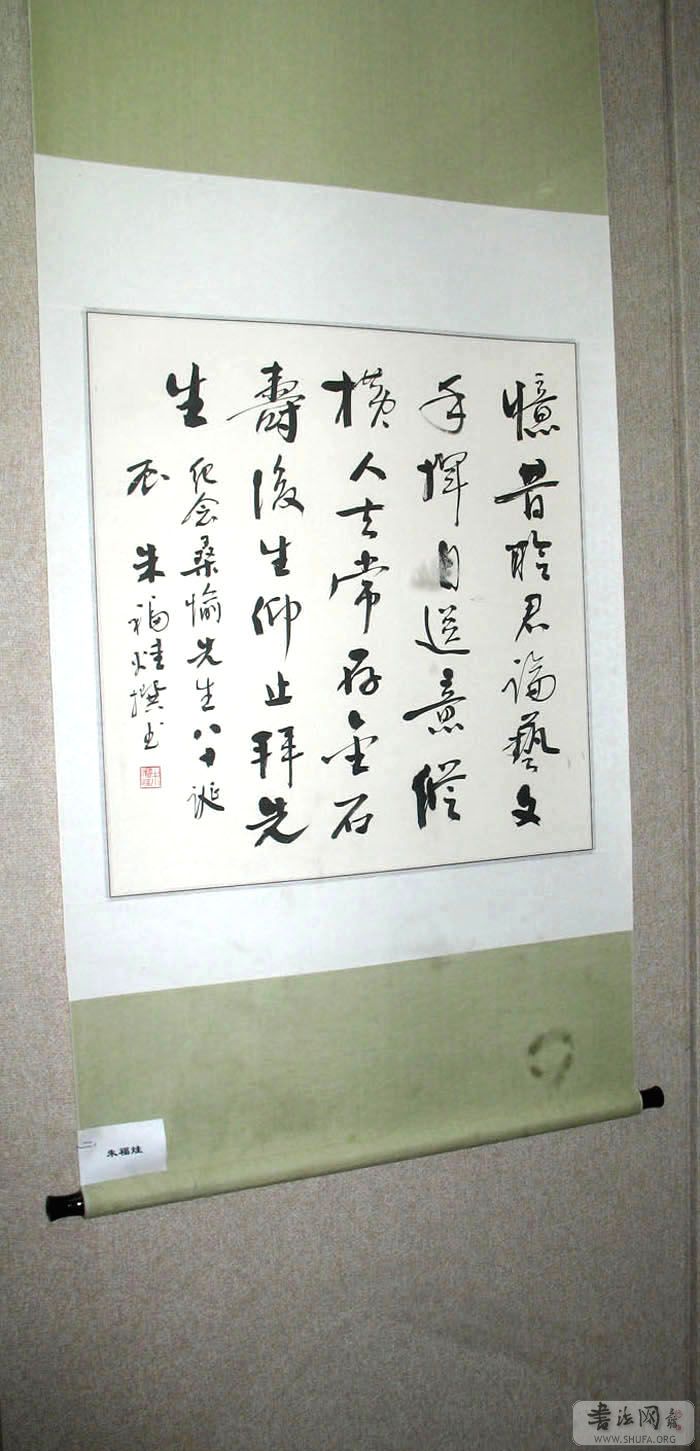 憶昔聆君論藝文
手揮目送意縱
橫人去常存金石
壽後生仰止拜先
生
纪念桑愉先生八十诞
辰 朱福烓撰书
朱福烓
書法网
WWW.SHUFA.ORG